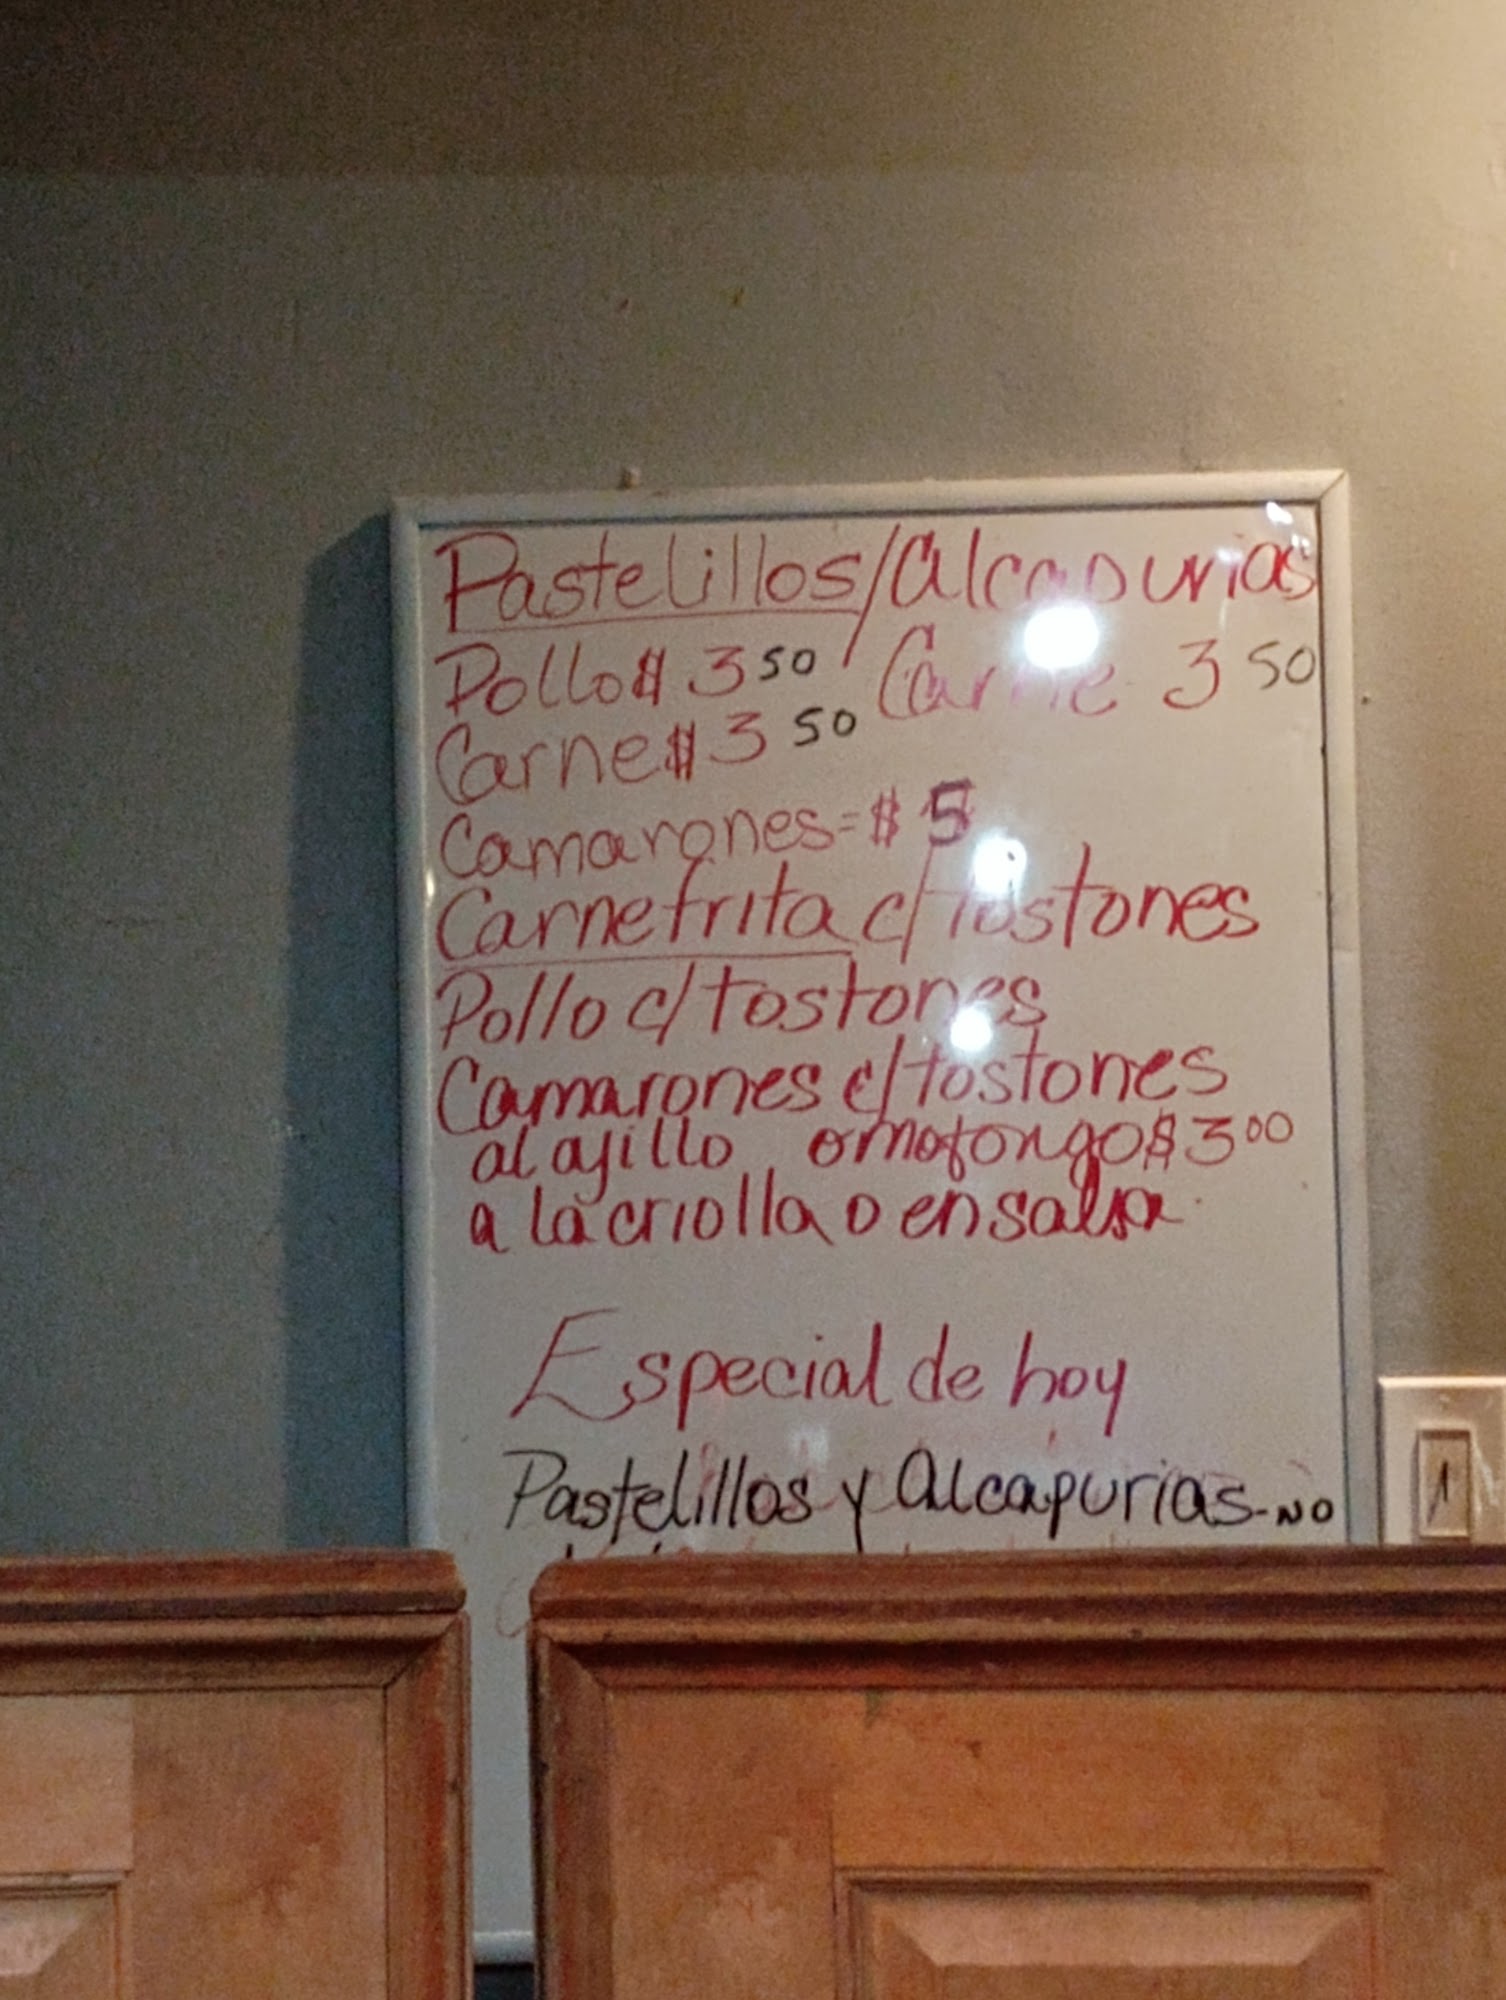 Pastelillos/Alcapurias
Pollo $ 3 50 / Carne 3 50
Carne $ 3 50
Camarones = $ 5
Carnefrita c/tostones
Pollo c/tostones
Camarones c/tostones
al ajillo o mofongo $ 3 00
a la criolla o en salsa.
Especial de hoy
Pastelillos y Alcapurias - NO